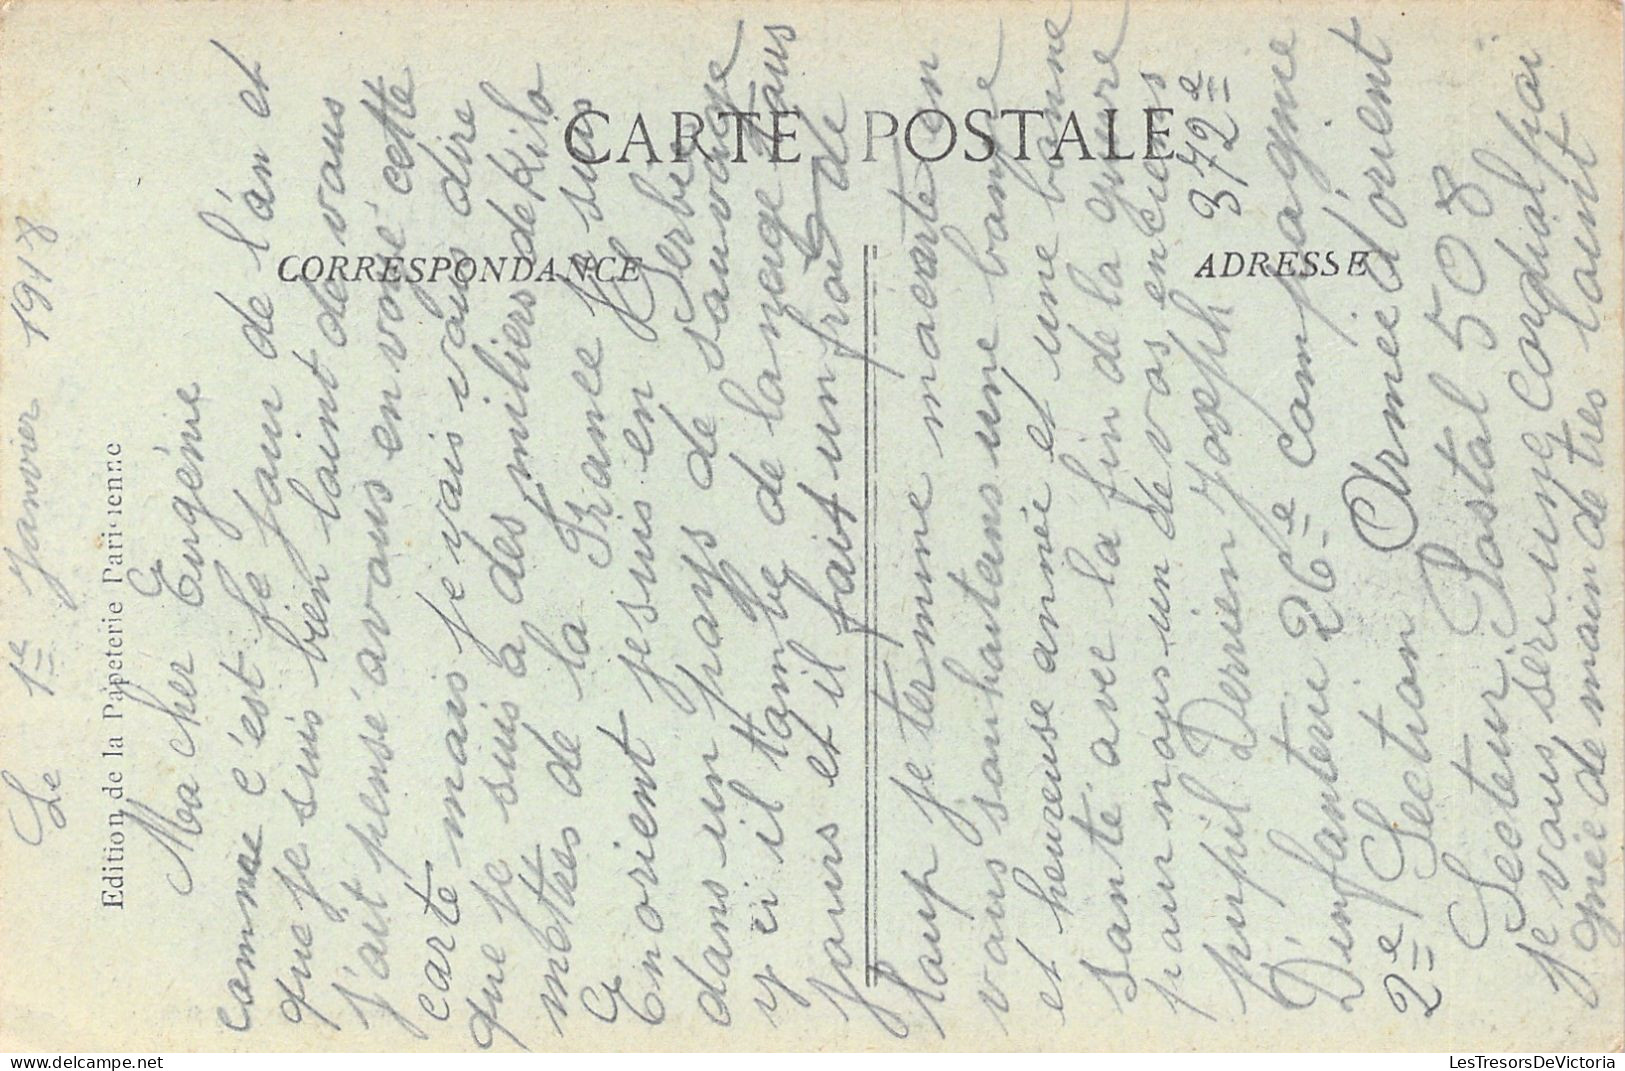 Le 1e Janvier 1918
Edition de la Papeterie Parisienne
CARTE POSTALE
CORRESPONDANCE
ADRESSE
Ma cher Eugénie
comme c'est le jour de l'an et
que je suis bien loint de vous
j'ait pensé a vous envoyé cette
carte mais je vais vous dire
que je suis a des miliers de kilo
metres de la France je suis
En orient je suis en Serbie
dans un pays de sauvage
y ci il tombe de la neige tous
jours et il fait un froid de
loup je termine ma carte en
vous souhaitens une bonne
et heureuse année et une bonne
santé avec la fin de la guere
pour nous un de vos enciens
pupil Derrien Joseph 372e
D'infanterie 26e compagnie
2e Section Armée d'orient
Secteur Postal 508
je vous seri une cordial poi
gnée de main de tres loint
LesTresorsDeVictoria